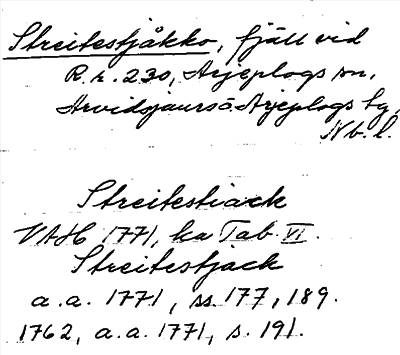 Streitestjåkko, fjäll vid
R.r. 230, Arjeplogs sn,
Arvidsjaurs o. Arjeplogs tg,
Nb. l.
Streitestiack
VAH 1771, ka Tab VI.
Streitestjack
a.a. 1771, ss. 177, 189.
1762, a.a. 1771, s. 191.